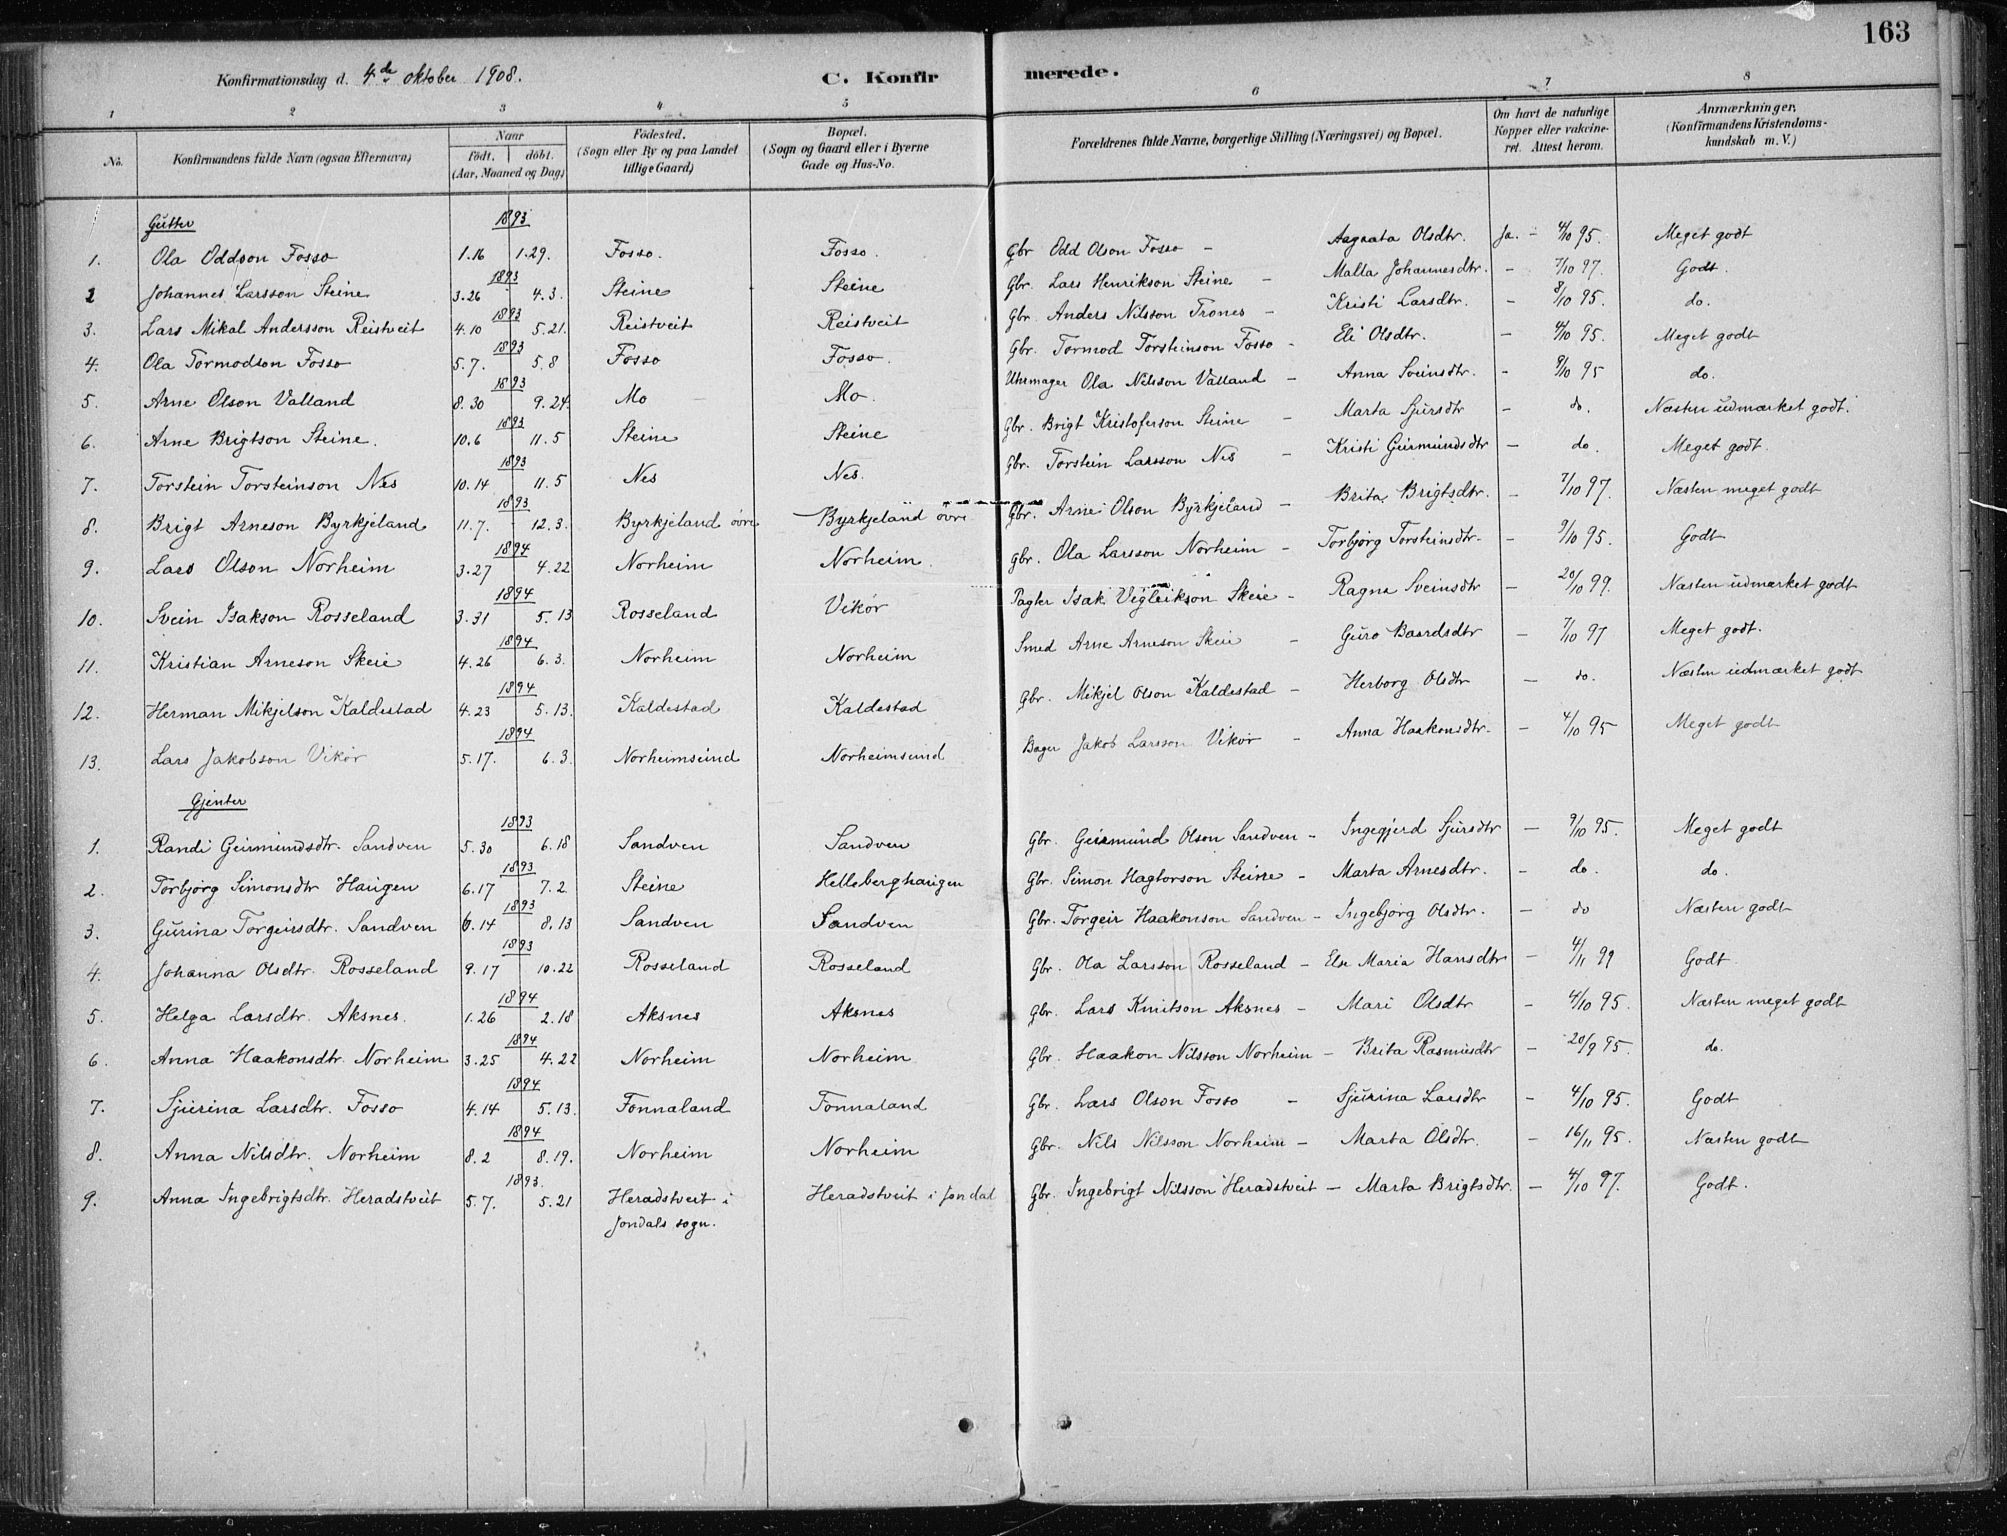 163
Konfirmationsdag d. 4de oktober 1908.
C. Konfirmerede.
1 2 3 4 5 6 7 8
No. | Konfirmandens fulde Navn (ogsaa Efternavn) | Naar født. døbt. (Aar, Maaned og Dag) | Fødested. (Sogn eller By og paa Landet tillige Gaard) | Bopæl. (Sogn og Gaard eller i Byerne Gade og Hus-No. | Forældrenes fulde Navne, borgerlige Stilling (Næringsvei) og Bopæl. | Om havt de naturlige Kopper eller vakcineret. Attest herom. | Anmærkninger, (Konfirmandens Kristendomskundskab m. V.)
Gutter
1893
1. Ola Oddson Fosso 1.16 1.29. Fosso. Fosso. Gbr Odd Olson Fosso - Aagaata Olsdtr. Ja. - 4/10 95. Meget godt
1893
2 Johannes Larsson Steine 3.26 4.3. Steine Steine Gbr. Lars Henrikson Steine - Malla Johannesdtr. - 7/10 97. Godt.
1893
3. Lars Mikal Andersson Reistveit 4.10 5.21. Reistveit Reistveit Gbr. Anders Nilsson Trones - Kristi Larsdtr. - 8/10 95. do.
1893
4. Ola Tormodson Fosso 5.7. 5.8 Fosso Fosso. Gbr. Tormod Torsteinson Fosso - Eli Olsdtr. - 4/10 95. Meget godt
1893
5. Arne Olson Valland 8.30 9.24. Mo Mo. Uhrmager Ola Nilsson Valland - Anna Sveinsdtr. - 9/10 95 do.
1893
6. Arne Brigtson Steine. 10.6 11.5 Steine Steine Gbr. Brigt Kristoferson Steine - Marta Sjursdtr - do. Næsten udmærket godt.
1893
7. Torstein Torsteinson Nes 10.14 11.5 Nes Nes. Gbr. Torstein Larsson Nes - Kristi Geirmundsdtr - do. Meget godt.
1893
8. Brigt Arneson Byrkjeland 11.7. 12.3. Byrkjeland øvre Byrkjeland øvre Gbr. Arne Olson Byrkjeland - Brita Brigtsdtr. - 7/10 97. Næsten meget godt
1894
9. Lars Olson Norheim 3.27 4.22 Norheim Norheim. Gbr. Ola Larsson Norheim - Torbjørg Torsteinsdtr. - 9/10 95. Godt
1894
10. Svein Isakson Rosseland 3.31 5.13 Rosseland Vikør Pagter Isak Vigleikson Skeie - Ragna Sveinsdtr - 20/10 99. Næsten udmærket godt
1894
11. Kristian Arneson Skeie 4.26 6.3. Norheim Norheim Smed Arne Arneson Skeie - Guro Baardsdtr - 7/10 97 Meget godt.
1894
12. Herman Mikjelson Kaldestad 4.23 5.13. Kaldestad Kaldestad Gbr. Mikjel Olson Kaldestad - Herborg Olsdtr - do. Næsten udmærket godt
1894
13. Lars Jakobson Vikør 5.17. 6.3. Norheimsund Norheimsund Bager Jakob Larsson Vikør - Anna Haakonsdtr. - 4/10 95 Meget godt
Gjenter
1893
1. Randi Geirmundsdtr. Sandven 5.30 6.18 Sandven Sandven Gbr. Geirmund Olson Sandven - Ingegjerd Sjursdtr - 9/10 95. Meget godt
1893
2. Torbjørg Simonsdtr Haugen 6.17 7.2 Steine Helleberghaugen Gbr. Simon Hagtorson Steine - Marta Arnesdtr. - do. do.
1893
3. Gurina Torgeirsdtr. Sandven 6.14 8.13 Sandven Sandven Gbr. Torgeir Haakonson Sandven - Ingebjørg Olsdtr. - do Næsten godt
1893
4. Johanna Olsdtr. Rosseland 9.17 10.22 Rosseland Rosseland Gbr. Ola Larsson Rosseland - Else Maria Hansdtr - 4/11 99 Godt.
1894
5. Helga Larsdtr. Aksnes. 1.26 2.18 Aksnes Aksnes Gbr. Lars Knutson Aksnes - Mari Olsdtr - 4/10 95. Næsten meget godt
1894
6. Anna Haakonsdtr. Norheim 3.25 4.22 Norheim Norheim Gbr. Haakon Nilsson Norheim - Brita Rasmusdtr - 20/9 95. do.
1894
7. Sjurina Larsdtr. Fosso 4.14 5.13. Fonnaland Fonnaland Gbr. Lars Olson Fosso - Sjurina Larsdtr - 4/10 95. Godt
1894
8. Anna Nilsdtr. Norheim 8.2 8.19. Norheim Norheim Gbr. Nils Nilsson Norheim - Marta Olsdtr. - 16/11 95. Næsten godt
1893.
9. Anna Ingebrigtsdtr. Heradstveit 5.7. 5.21 Heradstveit i Heradstveit i Jondal Gbr. Ingebrigt Nilsson Heradstveit - Marta Brigtsdtr. - 4/10 97. Godt.
Jondals sogn.